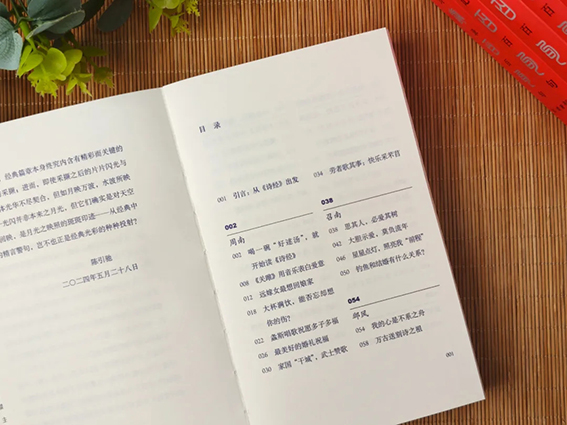 ，经典篇章本身终究内含有精彩而关键的
采撷；进而，即使采撷之后的片片闪光与
体光华不尽契合，但如月映万波，水波所映
光闪并非本来之月光，但它们确实是对天空
回映，是月光之映照的斑斑印迹——从经典中
的精言警句，岂不也正是经典光彩的种种投射？
陈引驰
二〇二四年五月二十八日
目 录
001 引言：从《诗经》出发
002
周南
002 喝一碗“好逑汤”，就
开始读《诗经》
008 《关雎》用音乐表白爱意
012 远嫁女最想回娘家
018 大杯满饮，能否忘却想
你的伤？
022 螽斯唱歌祝愿多子多福
026 最美好的婚礼祝福
030 家国“干城”，武士赞歌
034 劳者歌其事：快乐采芣苢
038
召南
038 思其人，必爱其树
042 大胆示爱，莫负流年
046 星星点灯，照亮我“裯”
050 钓鱼和结婚有什么关系？
054
邶风
054 我的心是不系之舟
058 万古送别诗之祖
001
3